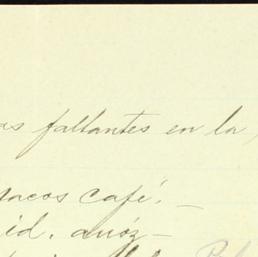 as faltantes en la
sacos café. —
id. arróz —